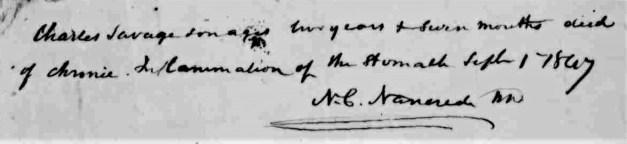 Charles Savage son aged two years & seven months died
of chronic Inflammation of the Stomach Sept 1 1847
N.C. Nancrede MD